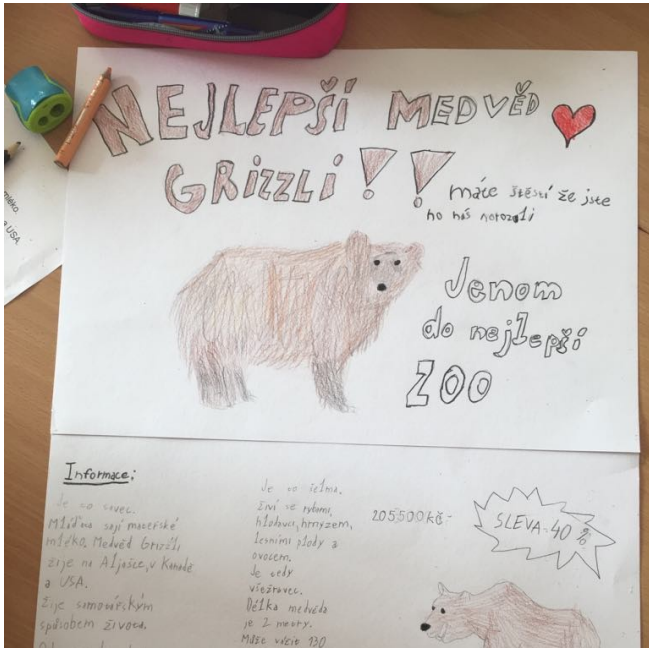 NEJLEPŠÍ MEDVĚD
GRIZZLI!!
máte štěstí že jste
ho
Jenom
do nejlepší
ZOO
mléko.
a USA.
Informace:
Je to savec.
Mláďata sají mateřské
mléko. Medvěd Grizzli
žije na Aljašce, v Kanadě
a USA.
Žije samotářským
způsobem života.
Je to šelma.
Živí se rybami,
hlodavci, hmyzem,
lesními plody a
ovocem.
Je tedy
všežravec.
Délka medvěda
je 2 metry.
Může vážit 130
205500 kč-
SLEVA-40 %